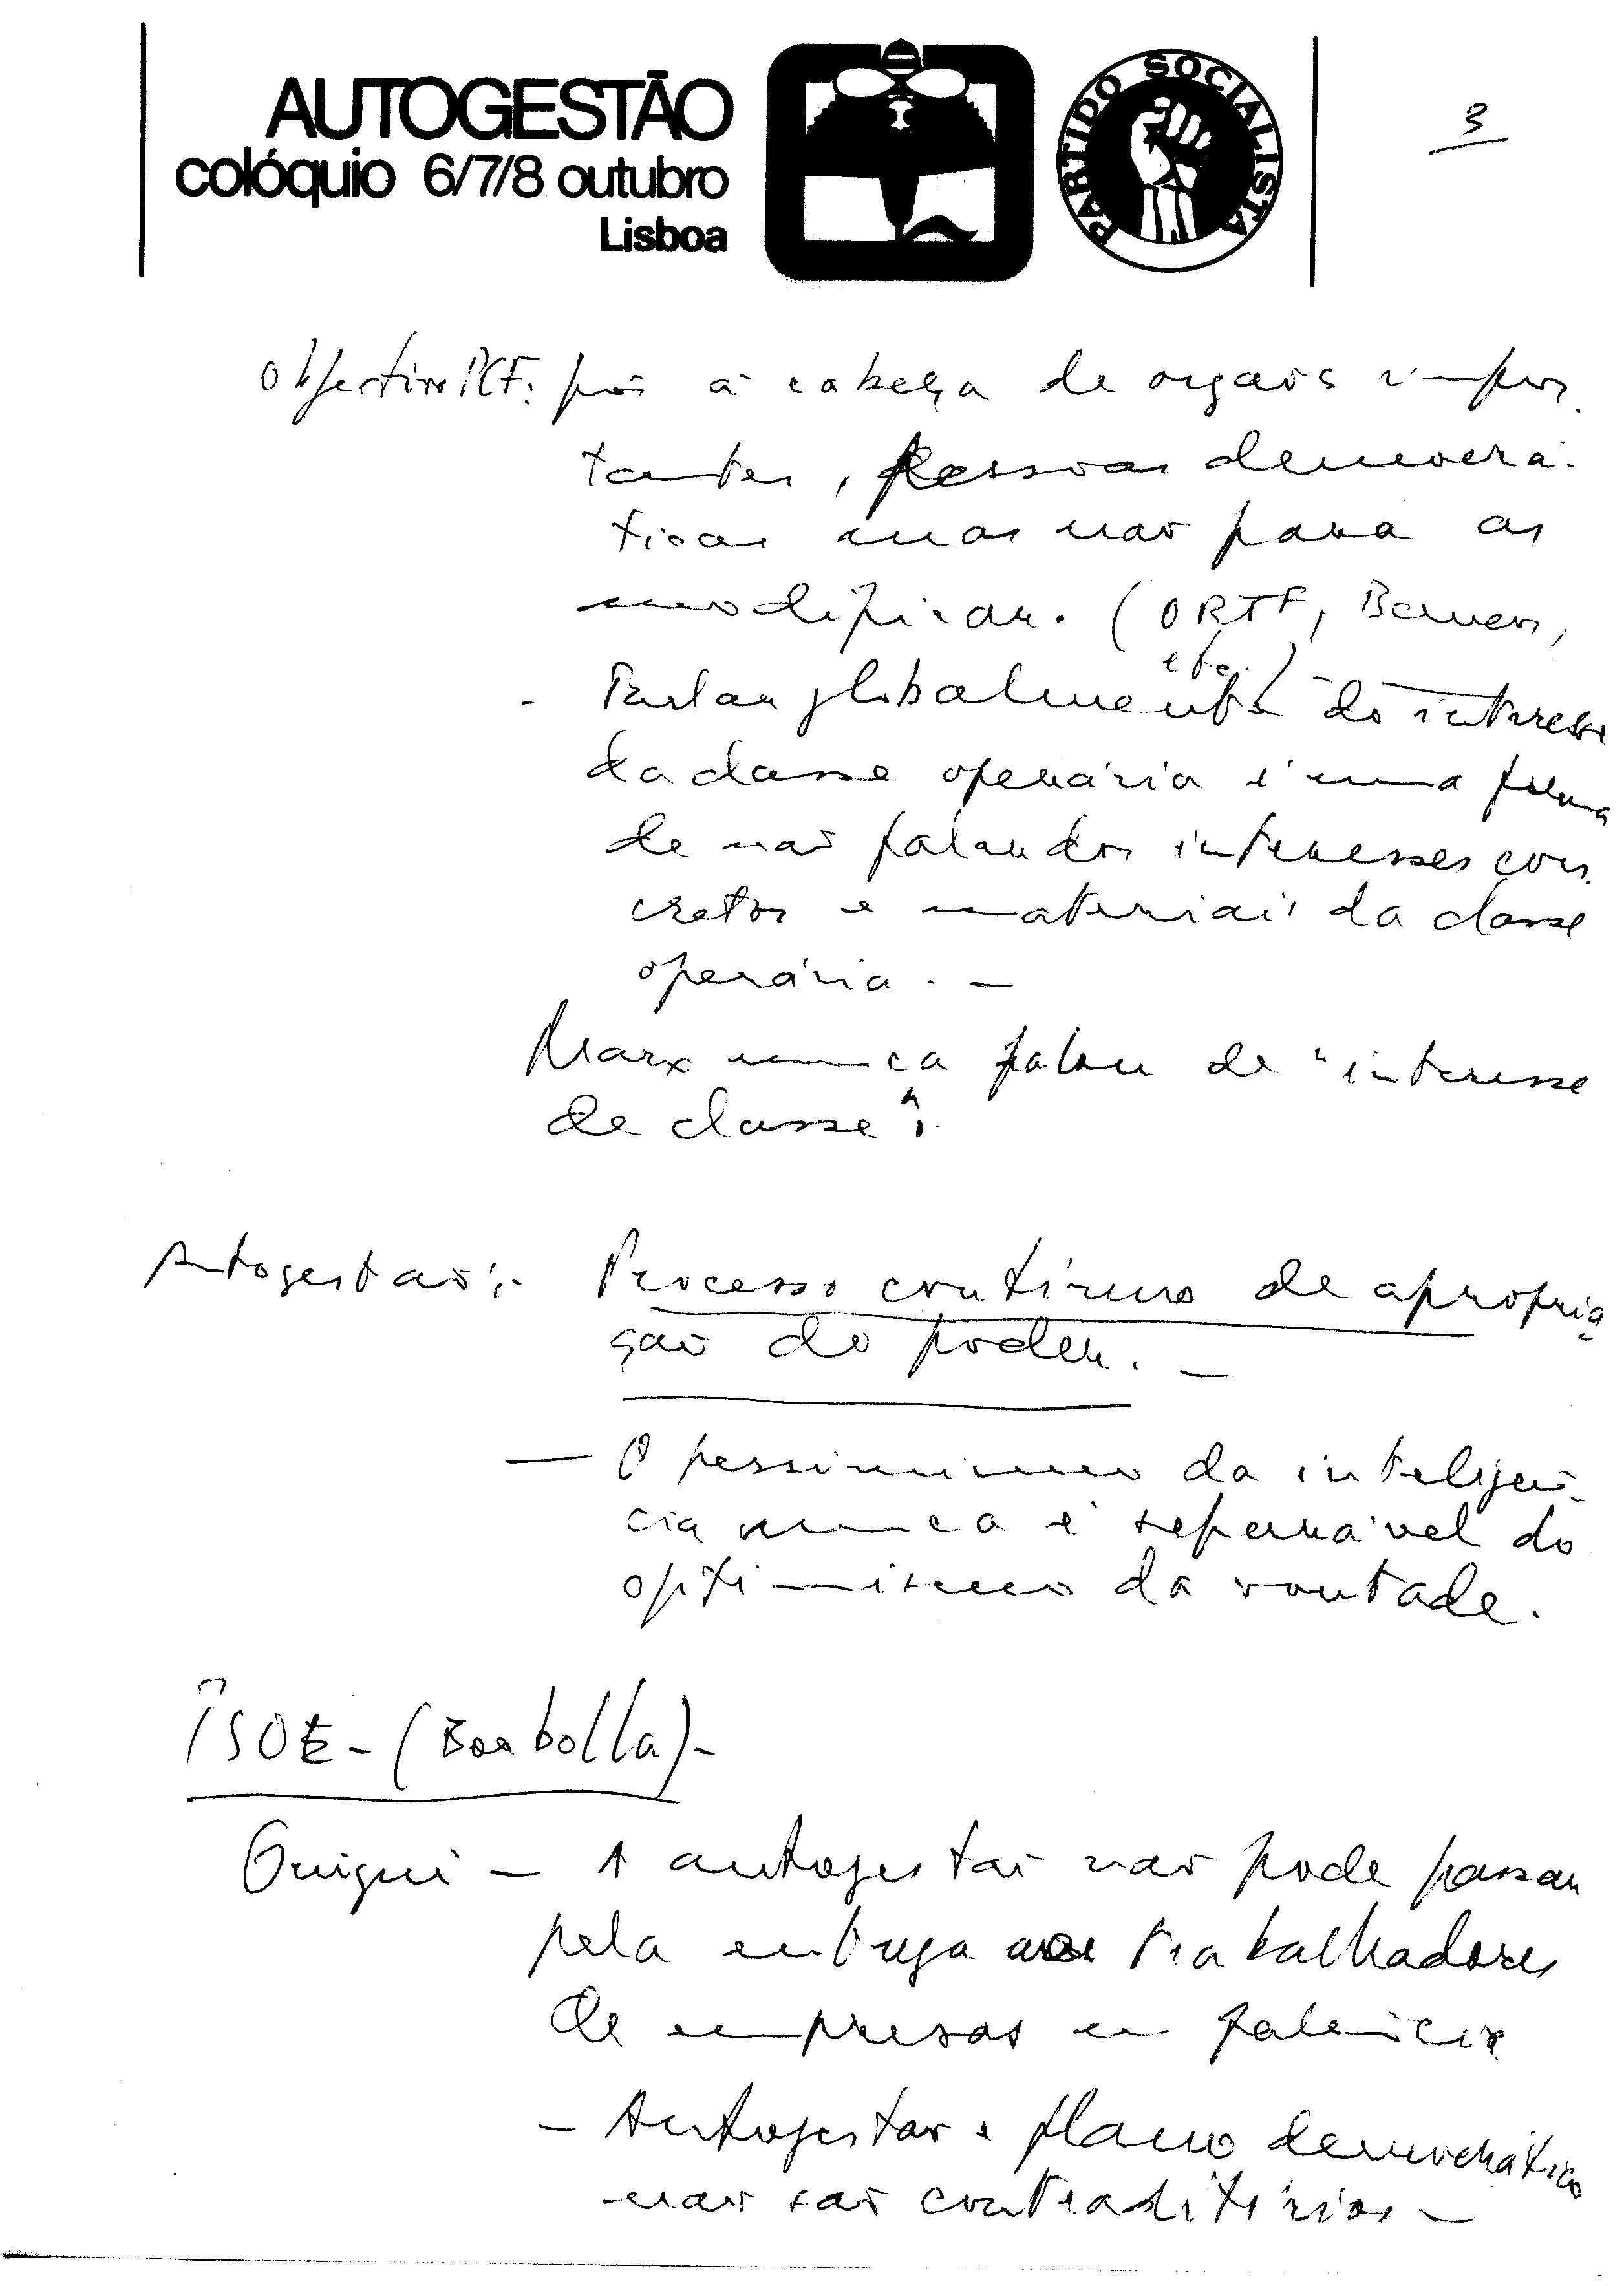 AUTOGESTÃO
colóquio 6/7/8 outubro
Lisboa
PARTIDO SOCIALISTA
3
Objectivo PCF: pôr à cabeça de orgãos impor
tantes, pessoas democrá-
ticas mas não para as
modificar. (ORTF, Bancos,
etc.)
- Falar globalmente do interesse
da classe operária é uma forma
de não falar dos interesses con-
cretos e materiais da classe
operária. -
Marx nunca falou de "interesse
de classe".
Autogestão:- Processo contínuo de apropria
ção do poder. -
- O pessimismo da inteligên-
cia nunca é separável do
optimismo da vontade.
PSOE - (Borbolla) -
- A autogestão não pode passar
pela entrega aos trabalhadores
de empresas em falência
- Autogestão e plano democrático
não são contraditórios -